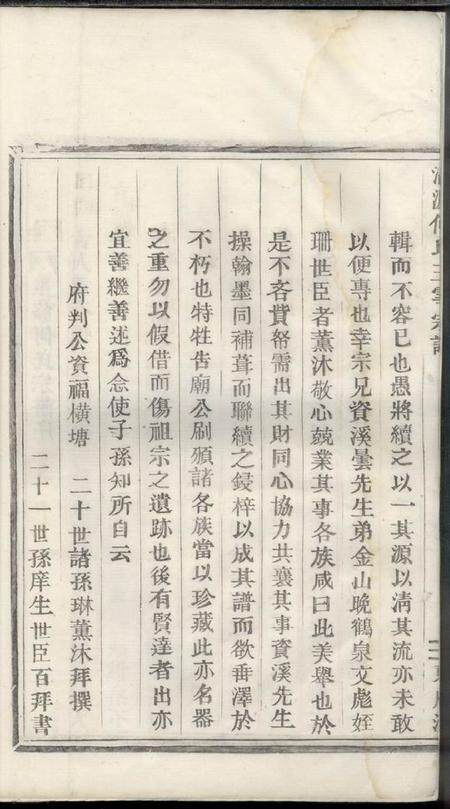 輯而不容已也愚將續之以一其源以淸其流亦未敢
以便專也幸宗兄資溪曇先生弟金山晩鶴泉文彪姪
珊世臣者薰沐敬心兢業其事各族咸曰此美舉也於
是不吝費帑需出其財同心協力共襄其事資溪先生
操翰墨同補葺而聯續之鋟梓以成其譜而欲垂澤於
不朽也特牲告廟公刷頒諸各族當以珍藏此亦名器
之重勿以假借而傷祖宗之遺跡也後有賢達者出亦
宜善繼善述爲念使子孫知所自云
府判公資福橫塘 二十世諸孫琳薰沐拜撰
二十一世孫庠生世臣百拜書